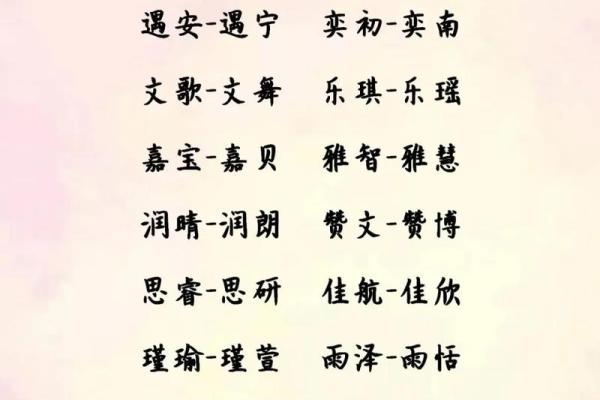 遇安-遇宁 奕初-奕南
文歌-文舞 乐琪-乐瑶
嘉宝-嘉贝 雅智-雅慧
润晴-润朗 赞文-赞博
思睿-思研 佳航-佳欣
瑾瑜-瑾萱 雨泽-雨恬